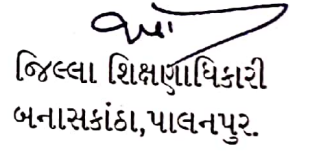 જિલ્લા શિક્ષણાધિકારી
બનાસકાંઠા,પાલનપુર.